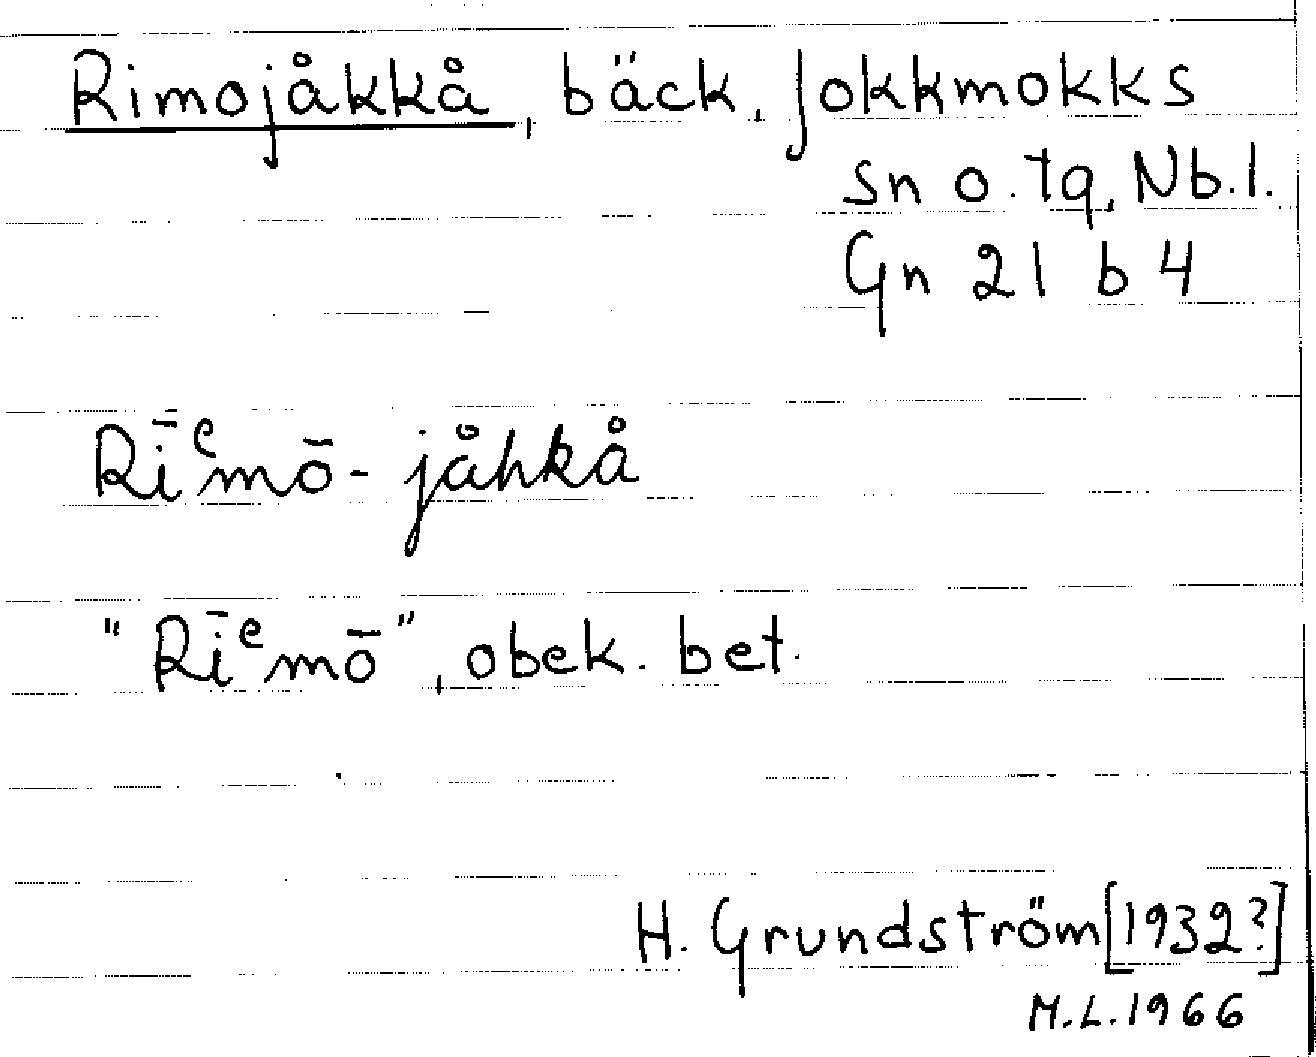 Rimojåkkå, bäck, Jokkmokks
sn o. tg, Nb.l.
Gn 21 b 4
Rīᵉmō-jåhkå
"Rīᵉmō", obek. bet.
H. Grundström [1932?]
M.L. 1966